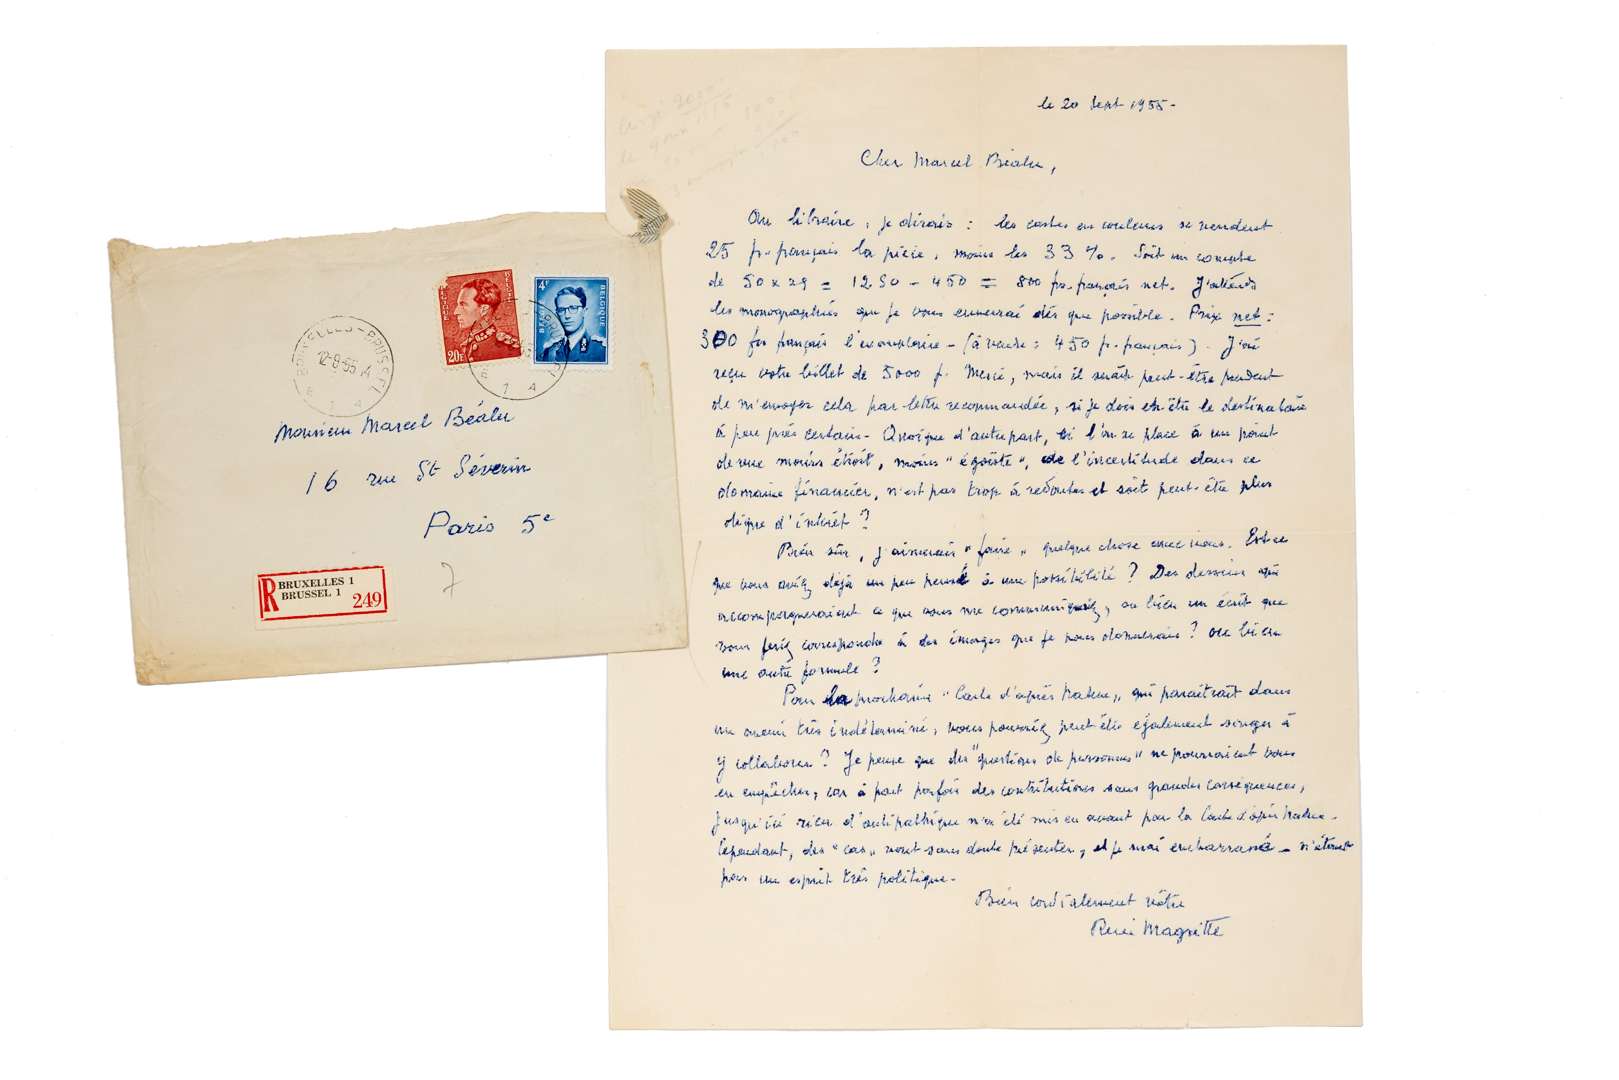 BRUXELLES - BRUSSEL
12-9-55
1 A
20F
BELGIQUE
BELGIE
4F
BELGIE
BELGIQUE
1 A
Monsieur Marcel Béalu
16 rue St Séverin
Paris 5e
7
R BRUXELLES 1
BRUSSEL 1 249
le 20 Sept 1955-
Cher Marcel Béalu,
Au libraire, je dirais : les cartes en couleurs se vendent
25 fr. français la pièce, moins les 33 %. Soit un compte
de 50 x 25 = 1250 - 450 = 800 fr. français net. J'attends
les monographies que je vous enverrai dès que possible. Prix net :
300 frs français l'exemplaire - (à vendre : 450 fr. français). J'ai
reçu votre billet de 5000 f. Merci, mais il serait peut-être prudent
de m'envoyer cela par lettre recommandée, si je dois en être le destinataire
à peu près certain - Quoique d'autre part, si l'on se place à un point
de vue moins étroit, moins "égoïste", de l'incertitude dans ce
domaine financier, n'est pas trop à redouter et soit peut-être plus
digne d'intérêt ?
Bien sûr, j'aimerais "faire" quelque chose avec vous. Est-ce
que vous avez déjà un peu pensé à une possibilité ? Des dessins qui
accompagneraient ce que vous me communiquez, ou bien un écrit que
vous feriez correspondre à des images que je vous donnerais ? ou bien
une autre formule ?
Pour la prochaine "Carte d'après Nature", qui paraîtrait dans
un avenir très indéterminé, vous pourriez peut-être également songer à
y collaborer ? Je pense que des "questions de personnes" ne pourraient vous
en empêcher, car à part parfois des contributions sans grandes conséquences,
jusqu'ici rien d'antipathique n'a été mis en avant par la Carte d'après Nature -
Cependant, des "cas" vont sans doute se présenter, et je serai embarrassé - n'étant
pas un esprit très politique -
Bien cordialement vôtre
René Magritte